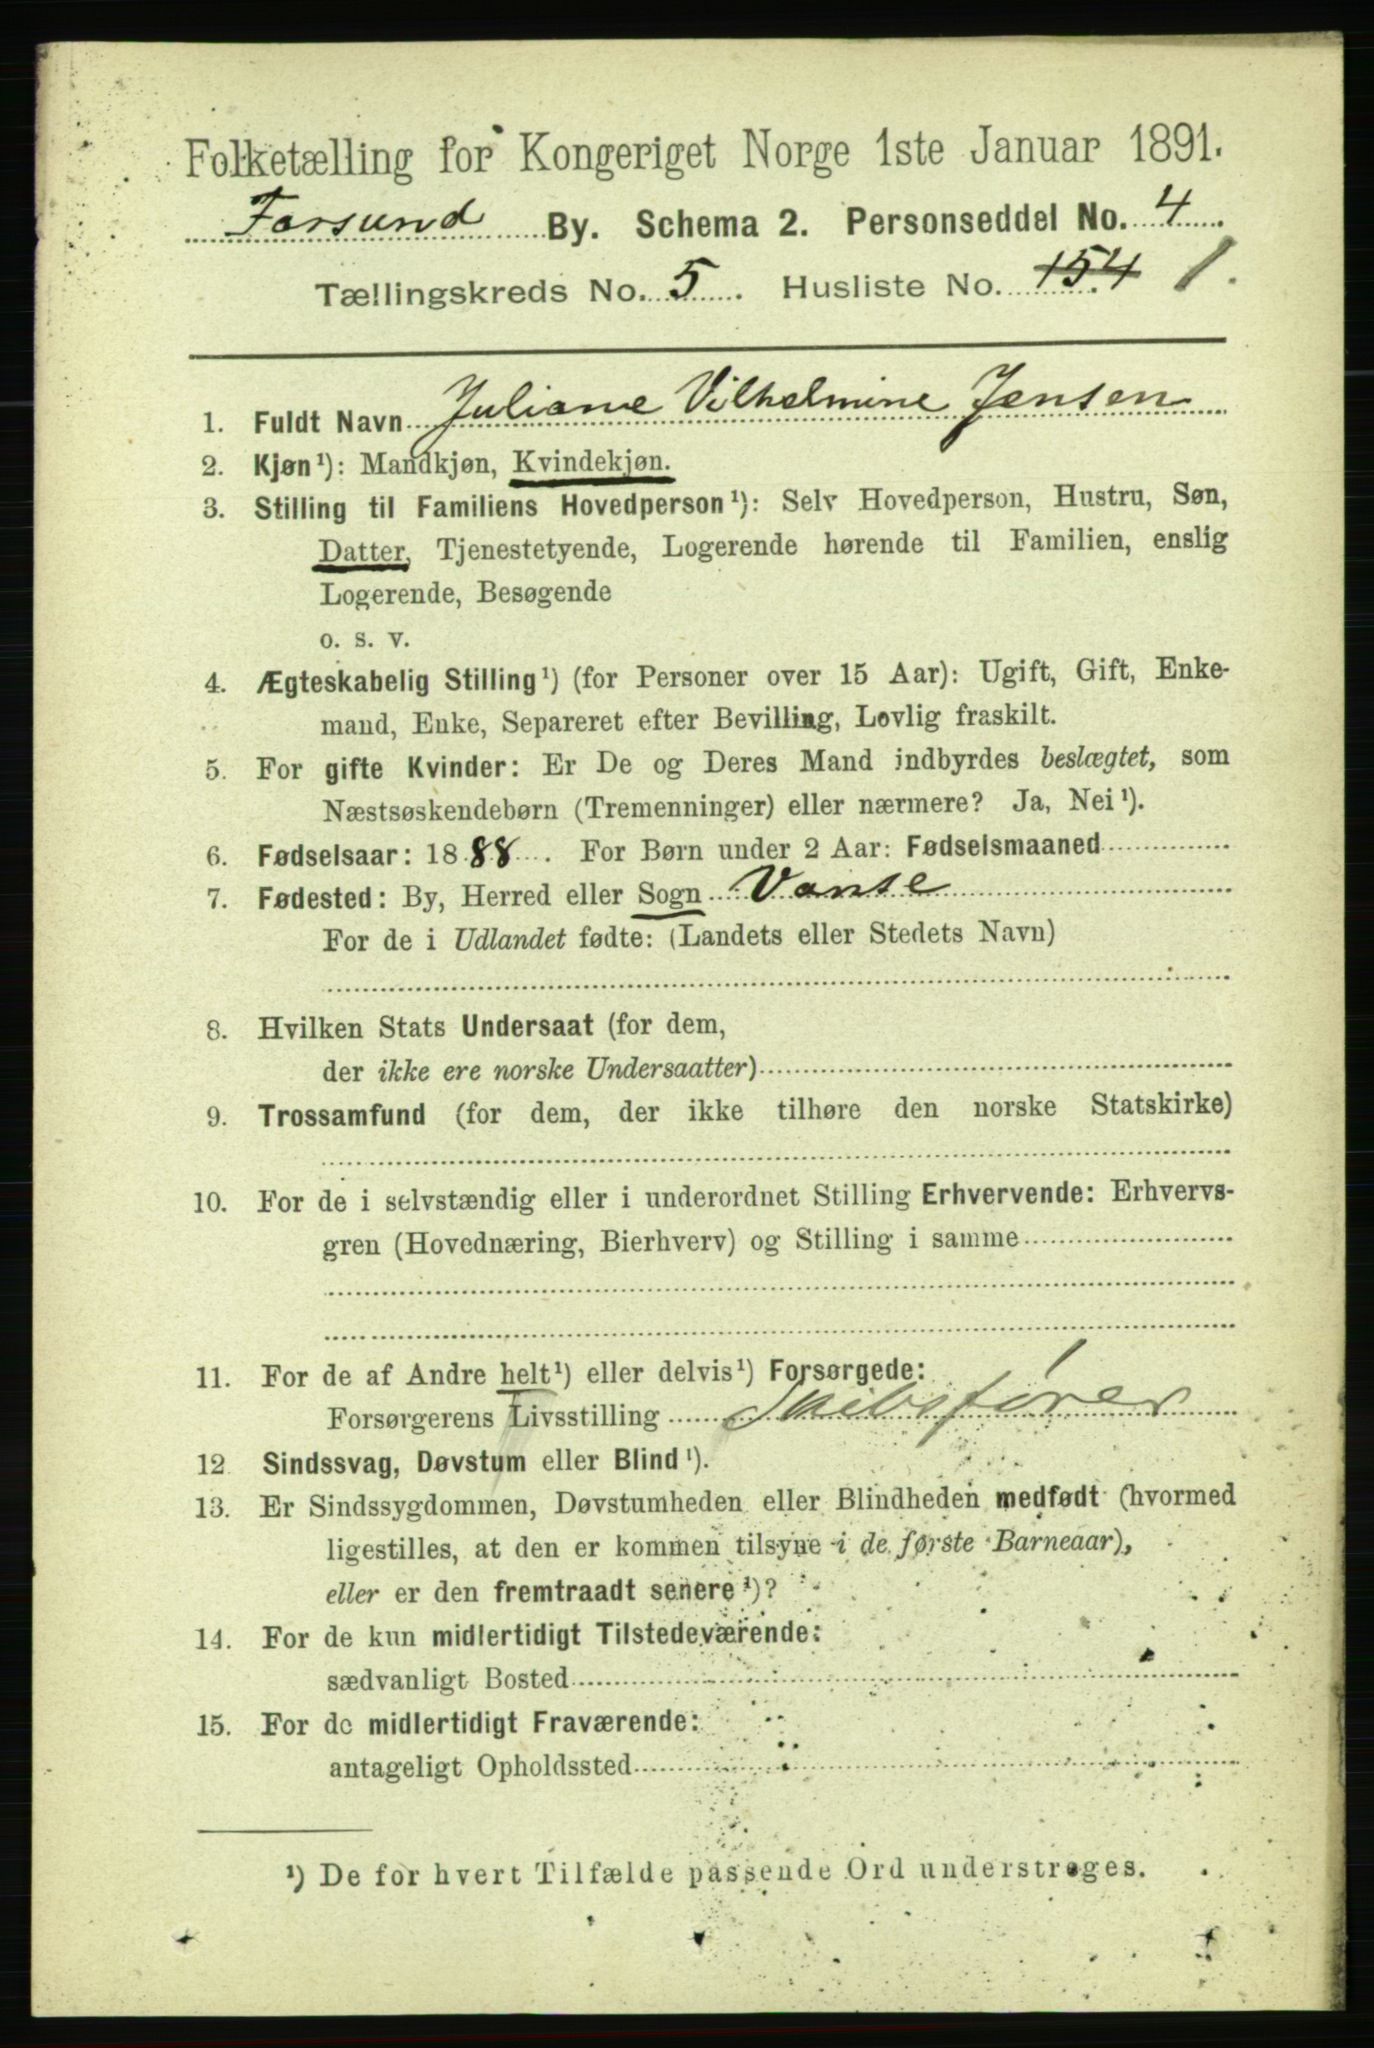 Folketælling for Kongeriget Norge 1ste Januar 1891.
Farsund By. Schema 2. Personseddel No. 4
Tællingskreds No. 5. Husliste No. 154 1.
1. Fuldt Navn Juliane Vilhelmine Jensen
2. Kjøn¹): Mandkjøn, Kvindekjøn.
3. Stilling til Familiens Hovedperson¹): Selv Hovedperson, Hustru, Søn,
Datter, Tjenestetyende, Logerende hørende til Familien, enslig
Logerende, Besøgende
o. s. v.
4. Ægteskabelig Stilling¹) (for Personer over 15 Aar): Ugift, Gift, Enke-
mand, Enke, Separeret efter Bevilling, Lovlig fraskilt.
5. For gifte Kvinder: Er De og Deres Mand indbyrdes beslægtet, som
Næstsøskendebørn (Tremenninger) eller nærmere? Ja, Nei¹).
6. Fødselsaar: 1888. For Børn under 2 Aar: Fødselsmaaned
7. Fødested: By, Herred eller Sogn Vanse
For de i Udlandet fødte: (Landets eller Stedets Navn)
8. Hvilken Stats Undersaat (for dem,
der ikke ere norske Undersaatter)
9. Trossamfund (for dem, der ikke tilhøre den norske Statskirke)
10. For de i selvstændig eller i underordnet Stilling Erhvervende: Erhvervs-
gren (Hovednæring, Bierhverv) og Stilling i samme
11. For de af Andre helt¹) eller delvis¹) Forsørgede:
Forsørgerens Livsstilling Skibsfører
12 Sindssvag, Døvstum eller Blind¹).
13. Er Sindssygdommen, Døvstumheden eller Blindheden medfødt (hvormed
ligestilles, at den er kommen tilsyne i de første Barneaar),
eller er den fremtraadt senere¹)?
14. For de kun midlertidigt Tilstedeværende:
sædvanligt Bosted
15. For de midlertidigt Fraværende:
antageligt Opholdssted
¹) De for hvert Tilfælde passende Ord understreges.